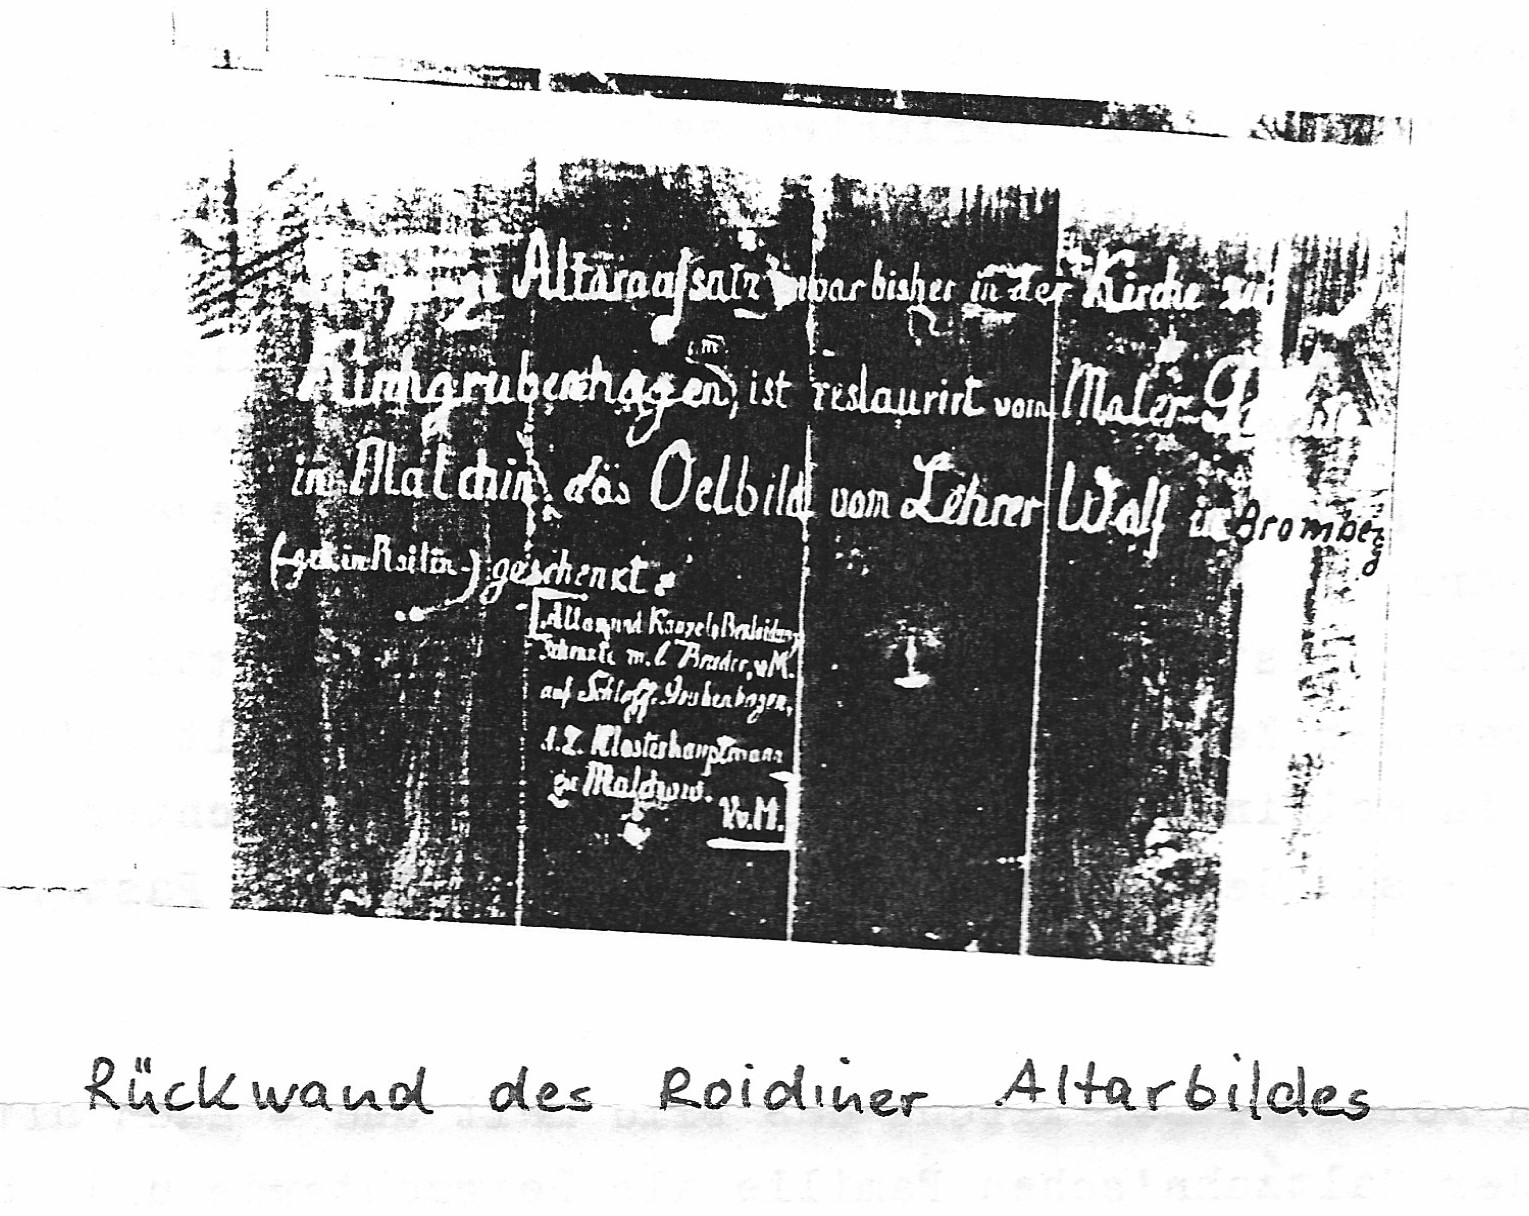 Altaraufsatz war bisher in der Kirche zu
Kirchgrubenhagen, ist restaurirt vom Maler
in Malchin, das Oelbild vom Lehrer Wolf in Bromberg
geschenkt.
Altar und Kanzel
schenkte m. l. Bruder, v. M.
auf Schloss Grubenhagen,
z. Z. Klosterhauptmann
zu Malchow.
V. v. M.
Rückwand des Roidiner Altarbildes